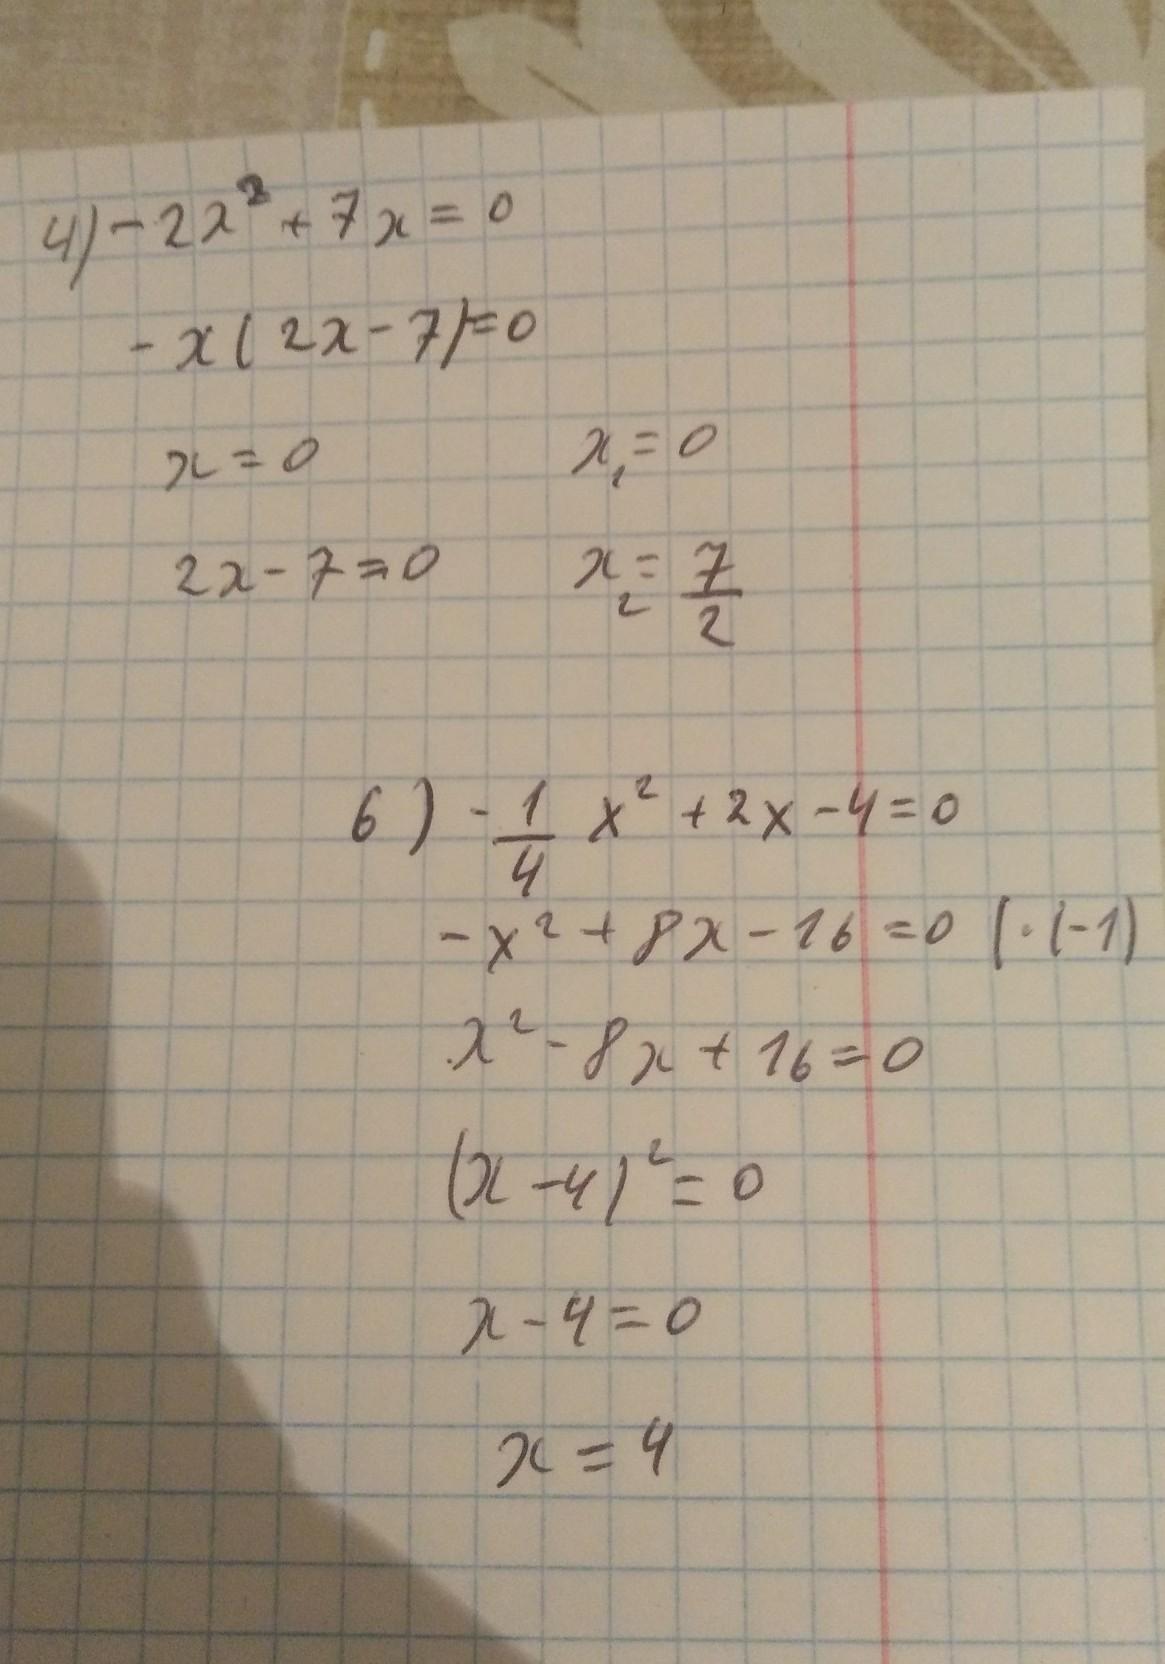 4) -2x² + 7x = 0
-x(2x - 7) = 0
x = 0 x₁ = 0
2x - 7 = 0 x₂ = 7/2
6) -1/4 x² + 2x - 4 = 0
-x² + 8x - 16 = 0 | · (-1)
x² - 8x + 16 = 0
(x - 4)² = 0
x - 4 = 0
x = 4